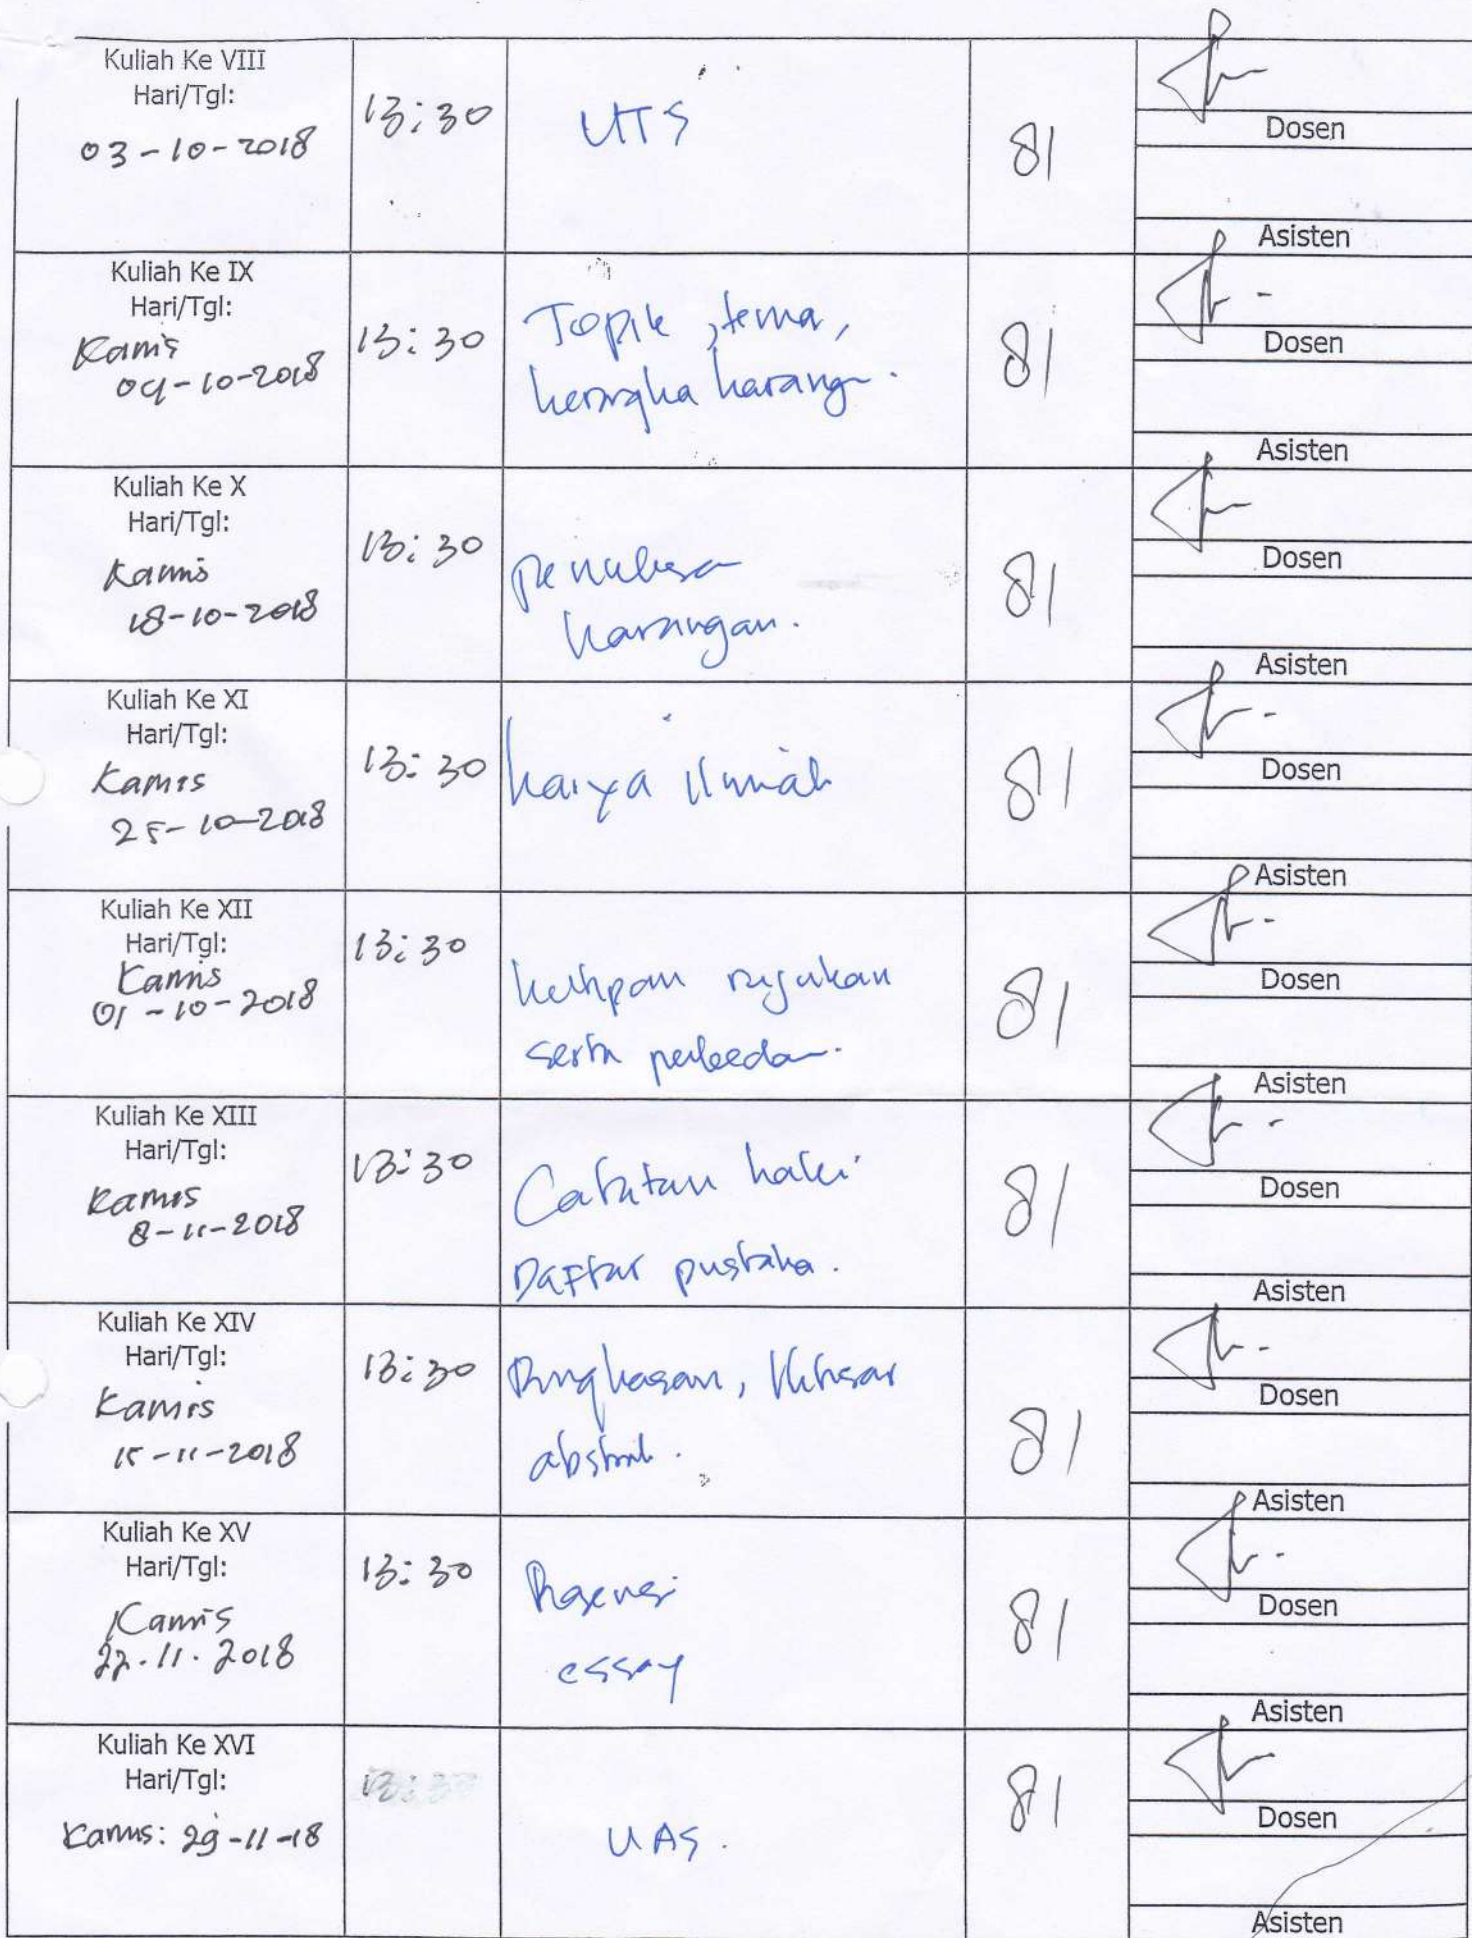 Kuliah Ke VIII
Hari/Tgl:
03-10-2018
13:30
UTS
81
Dosen
Asisten
Kuliah Ke IX
Hari/Tgl:
Kamis
04-10-2018
13:30
Topik, tema,
kerangka karang
81
Dosen
Asisten
Kuliah Ke X
Hari/Tgl:
Kamis
18-10-2018
13:30
karangan.
81
Dosen
Asisten
Kuliah Ke XI
Hari/Tgl:
Kamis
25-10-2018
13:30
karya ilmiah
81
Dosen
Asisten
Kuliah Ke XII
Hari/Tgl:
Kamis
01-10-2018
13:30
kutipan rujukan
serta
81
Dosen
Asisten
Kuliah Ke XIII
Hari/Tgl:
Kamis
8-11-2018
13:30
Catatan kaki
Daftar pustaka.
81
Dosen
Asisten
Kuliah Ke XIV
Hari/Tgl:
Kamis
15-11-2018
13:30
Ringkasan, Ikhtisar
abstrak.
81
Dosen
Asisten
Kuliah Ke XV
Hari/Tgl:
Kamis
22.11.2018
13:30
Resensi
essay
81
Dosen
Asisten
Kuliah Ke XVI
Hari/Tgl:
Kamis: 29-11-18
13:30
UAS.
81
Dosen
Asisten